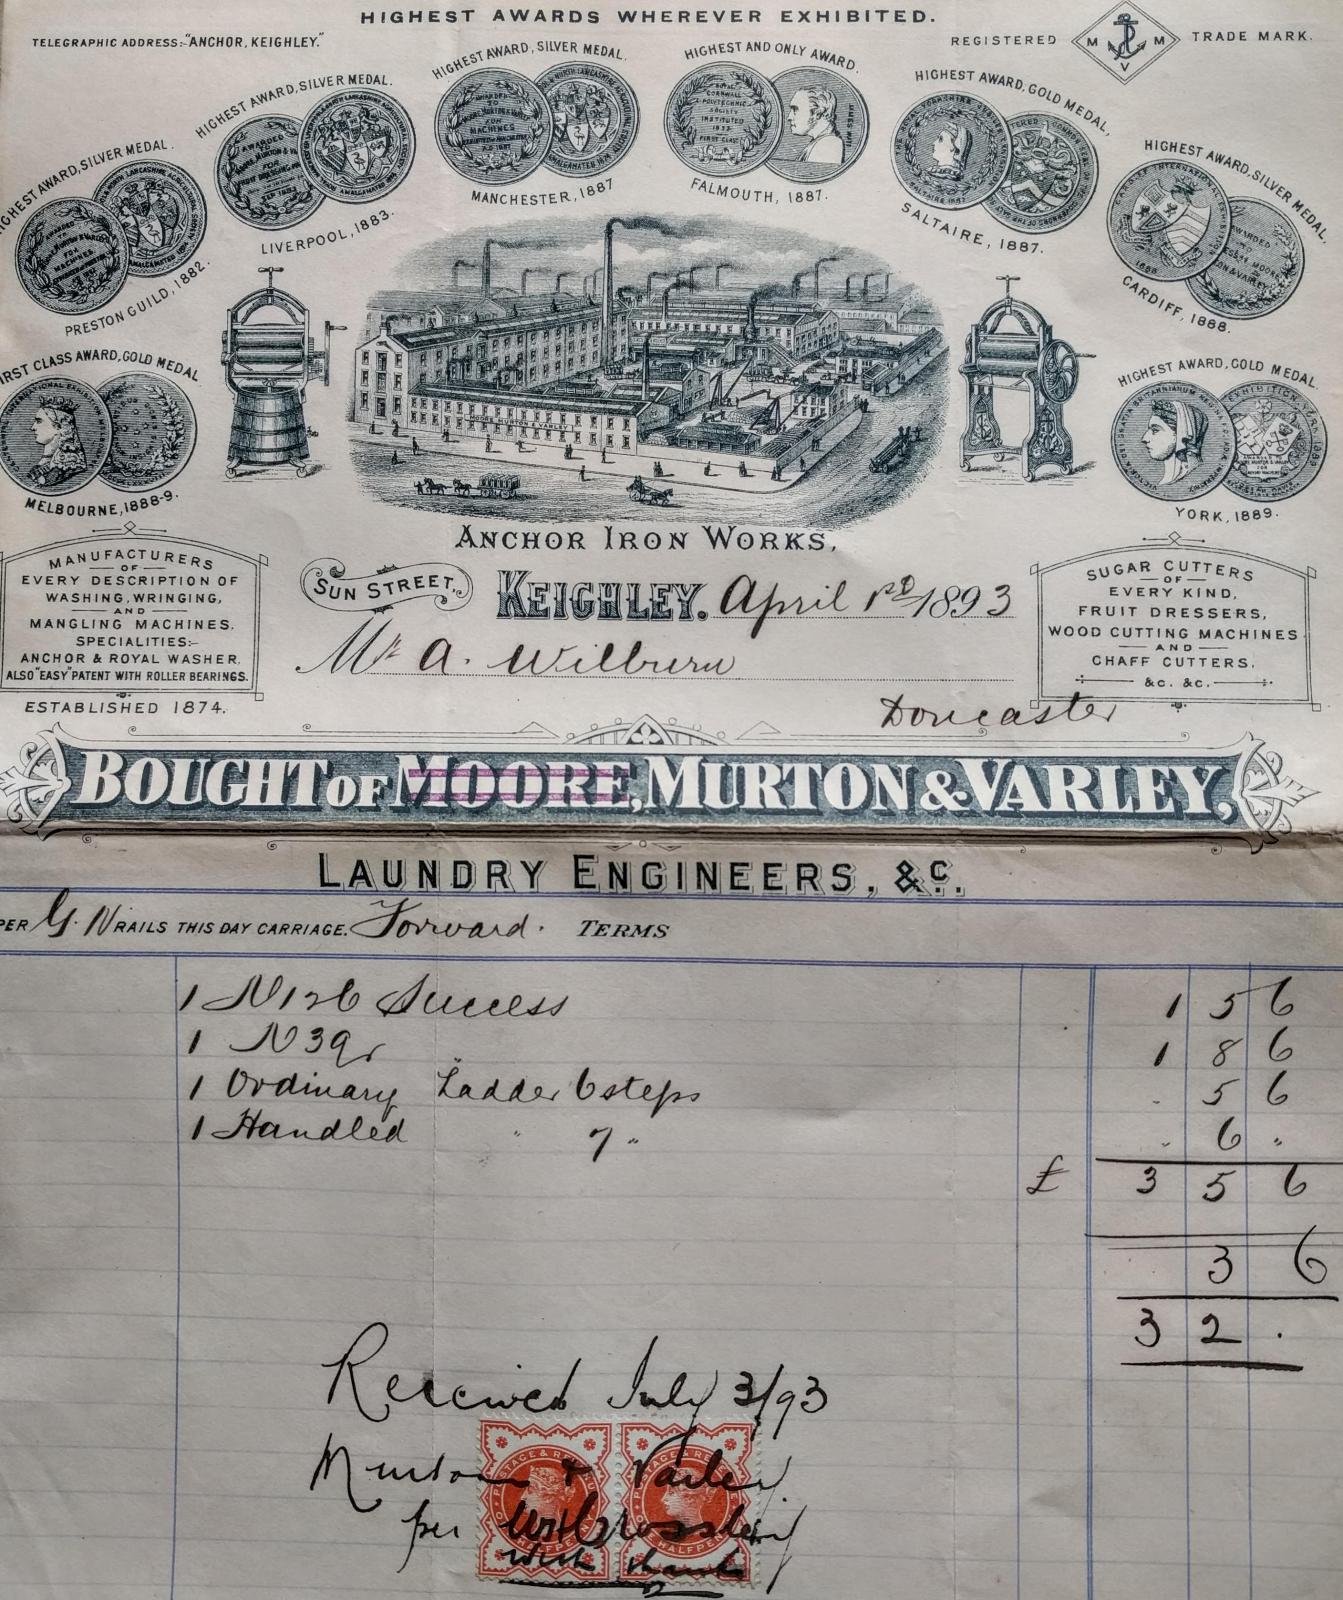 HIGHEST AWARDS WHEREVER EXHIBITED.
TELEGRAPHIC ADDRESS:-"ANCHOR, KEIGHLEY."
REGISTERED
M M
V
TRADE MARK.
HIGHEST AWARD, SILVER MEDAL.
PRESTON GUILD, 1882.
HIGHEST AWARD, SILVER MEDAL.
LIVERPOOL, 1883.
HIGHEST AWARD, SILVER MEDAL.
MANCHESTER, 1887
HIGHEST AND ONLY AWARD.
ROYAL
CORNWALL
POLYTECHNIC
SOCIETY
INSTITUTED
1833
FIRST CLASS
JAMES WATT
FALMOUTH, 1887.
HIGHEST AWARD, GOLD MEDAL,
SALTAIRE, 1887.
HIGHEST AWARD, SILVER MEDAL.
CARDIFF, 1888.
FIRST CLASS AWARD, GOLD MEDAL
MELBOURNE, 1888-9.
HIGHEST AWARD, GOLD MEDAL.
YORK, 1889.
MOORE MURTON & VARLEY
ANCHOR IRON WORKS,
SUN STREET,
KEIGHLEY. April 1893
Mr A. Wilburn
Doncaster
MANUFACTURERS
OF
EVERY DESCRIPTION OF
WASHING, WRINGING,
AND
MANGLING MACHINES.
SPECIALITIES:-
ANCHOR & ROYAL WASHER.
ALSO "EASY" PATENT WITH ROLLER BEARINGS.
ESTABLISHED 1874.
SUGAR CUTTERS
OF
EVERY KIND,
FRUIT DRESSERS,
WOOD CUTTING MACHINES
AND
CHAFF CUTTERS,
&c. &c.
BOUGHT OF MOORE, MURTON & VARLEY,
LAUNDRY ENGINEERS, &c.
PER G. N RAILS THIS DAY CARRIAGE. Forward. TERMS
1 N126 Success 1 5 6
1 N39 1 8 6
1 Ordinary Ladder 6 steps . 5 6
1 Handled " 7 " " 6 "
£ 3 5 6
3 6
3 2 .
Received July 3/93
Murton & Varley
per
with thanks